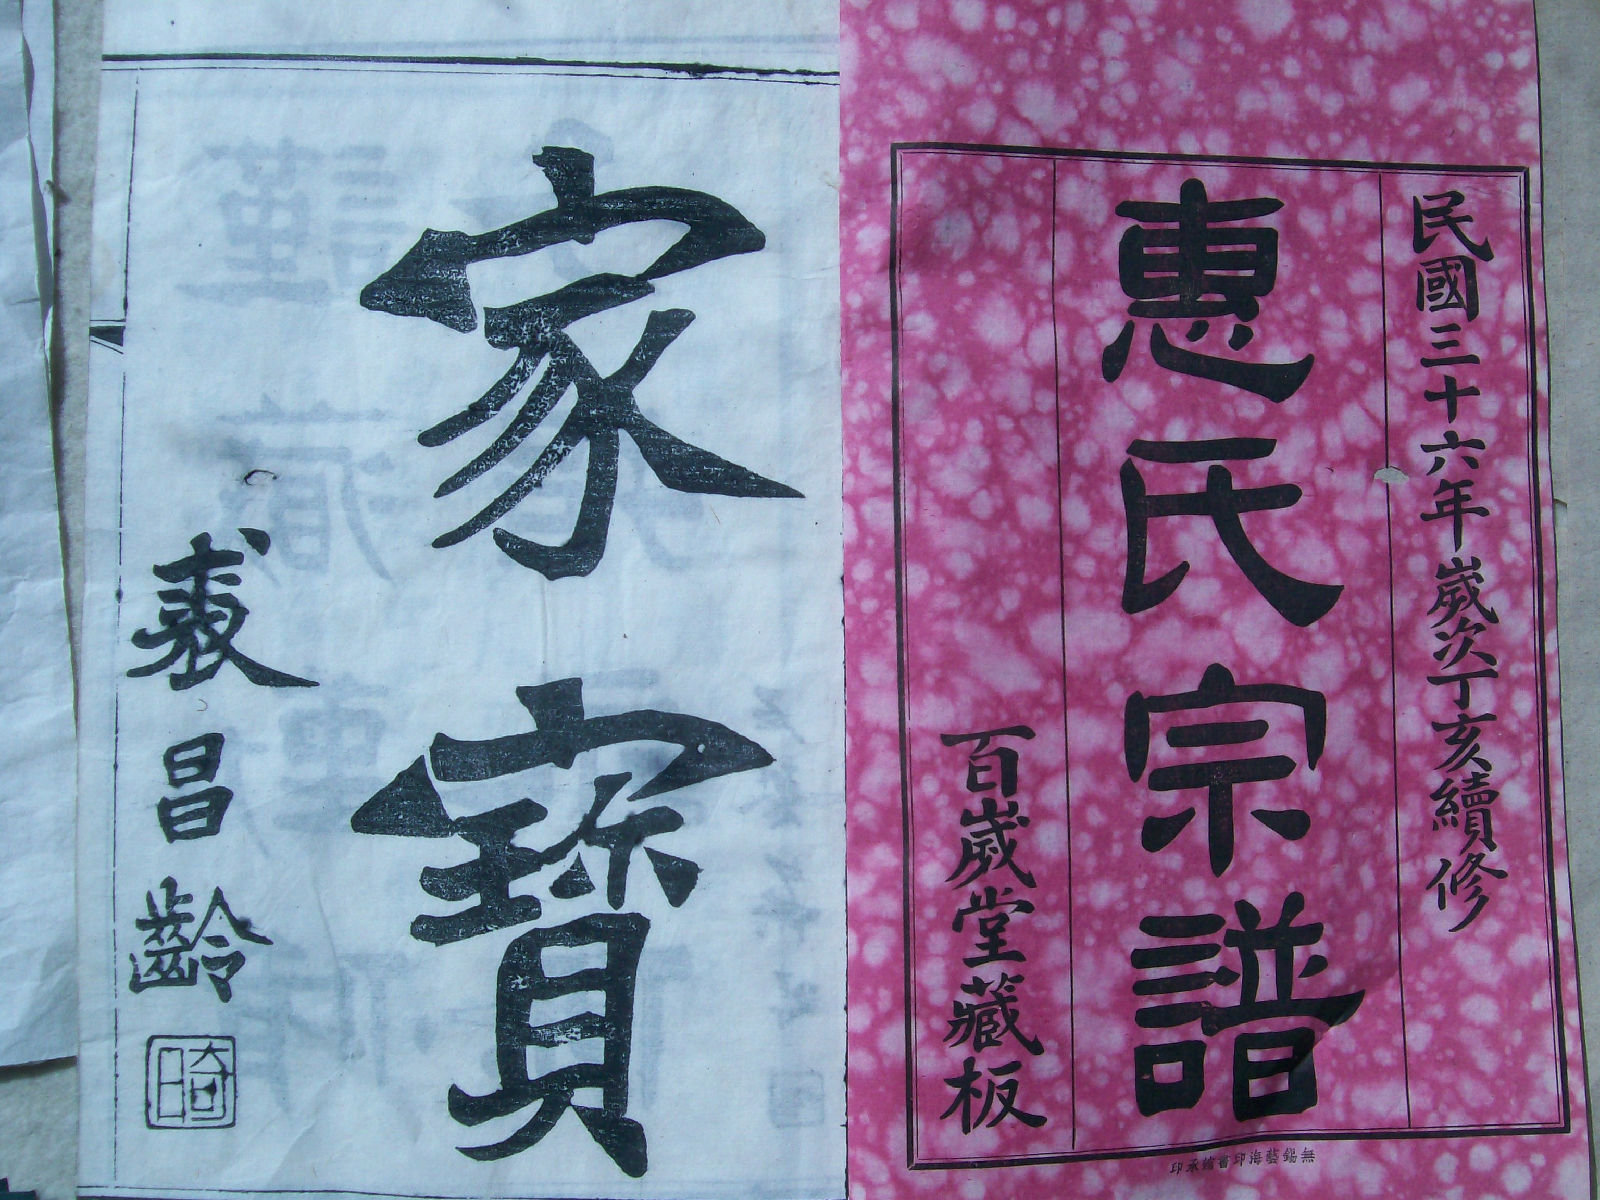 民國三十六年歲次丁亥續修
惠氏宗譜
百歲堂藏板
無錫藝海印書館承印
家寶
裘昌齡